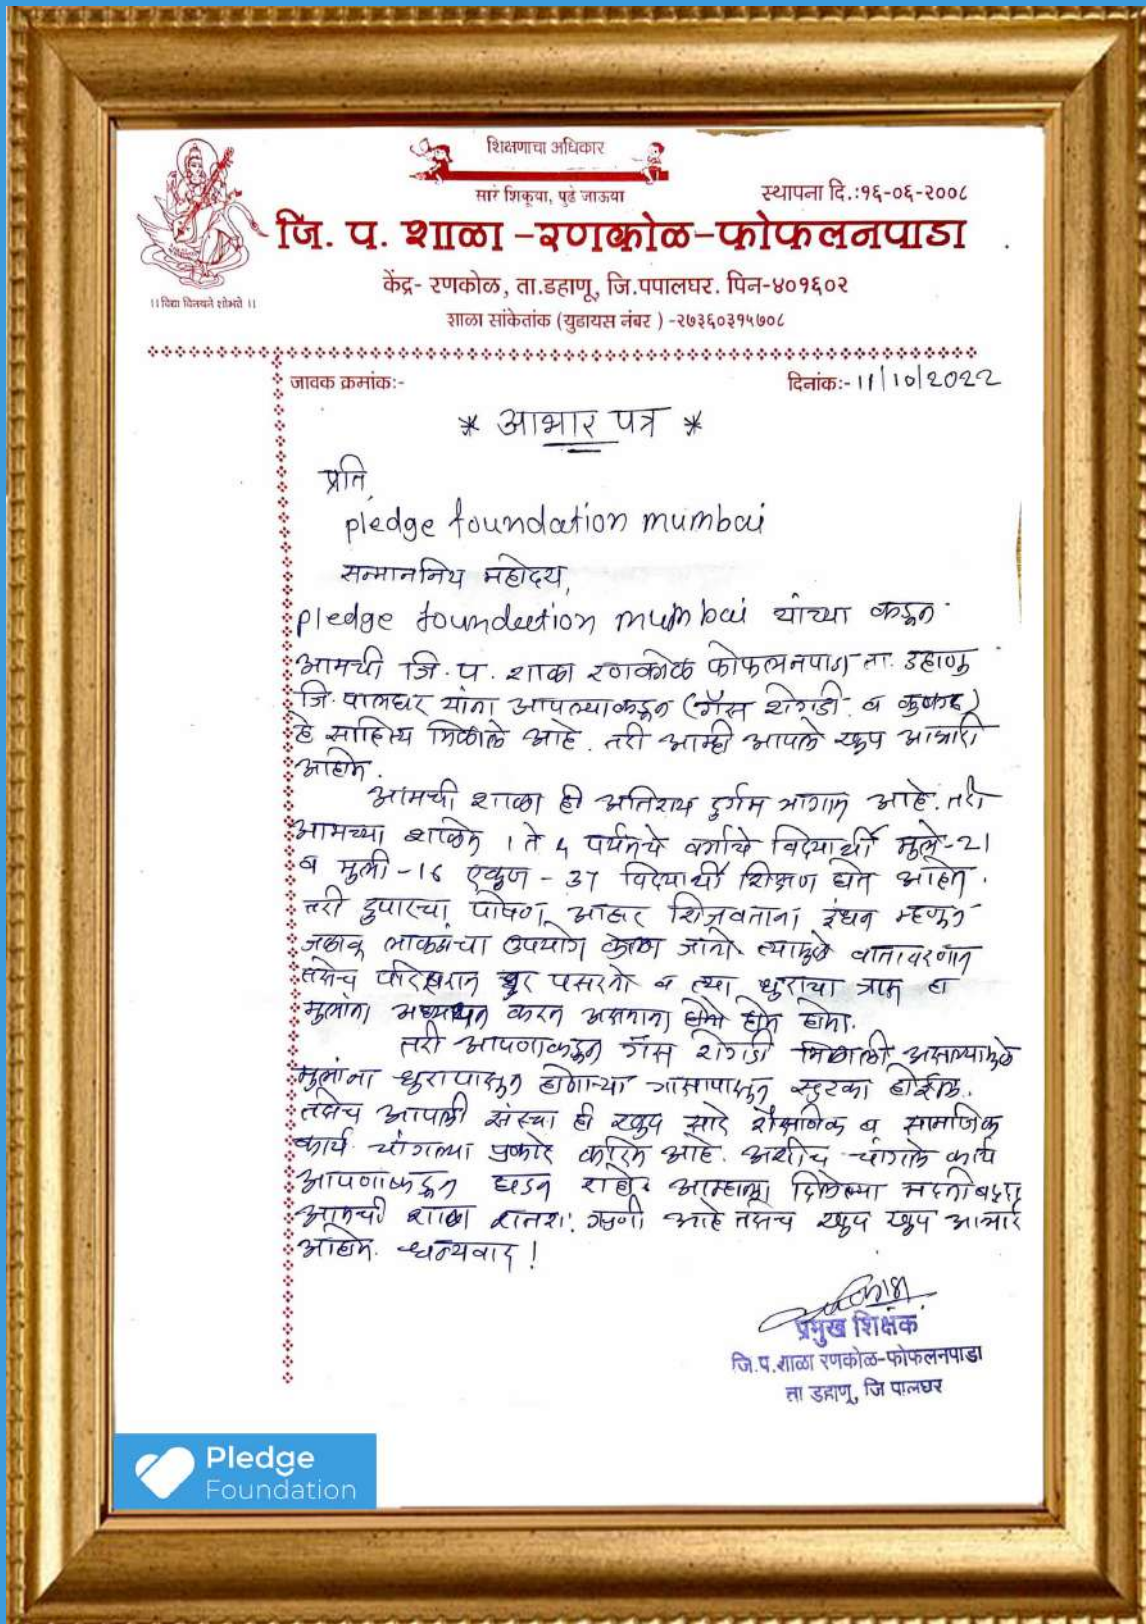 शिक्षणाचा अधिकार
सारे शिकूया, पुढे जाऊया
स्थापना दि.:१६-०६-२००८
जि. प. शाळा -रणकोळ-फोफलनपाडा
केंद्र- रणकोळ, ता.डहाणू, जि.पपालघर. पिन-४०१६०२
।। विद्या विनयने शोभते ।।
शाळा सांकेतांक (युडायस नंबर ) -२७३६०३१५७०८
जावक क्रमांक:-
दिनांक:- 11/10/2022
* आभार पत्र *
प्रति,
pledge foundation mumbai
सन्माननिय महोदय,
pledge foundation mumbai यांच्या कडून
आमची जि. प. शाळा रणकोळ फोफलनपाडा ता. डहाणू
जि. पालघर यांना आपल्याकडून (गॅस शेगडी व कुकर)
हे साहित्य मिळाले आहे. तरी आम्ही आपले खुप आभारी
आहोत.
आमची शाळा ही अतिशय दुर्गम भागात आहे. तरी
आमच्या शाळेत 1 ते 4 पर्यंतचे वर्गाचे विद्यार्थी मुले-21
व मुली -16 एकूण - 37 विद्यार्थी शिक्षण घेत आहेत.
तरी दुपारचा पोषण आहार शिजवताना इंधन म्हणून
जळाऊ लाकडांचा उपयोग केला जातो त्यामुळे वातावरणात
तसेच परिसरात धुर पसरतो व त्या धुराचा त्रास हा
मुलांना अध्ययन करत असताना होतो होता.
तरी आपणाकडून गॅस शेगडी मिळाली असल्यामुळे
मुलांना धुरापासून होणाऱ्या त्रासापासून सुटका होईल.
तसेच आपली संस्था ही खुप सारे शैक्षणिक व सामाजिक
कार्य चांगल्या प्रकारे करित आहे. अशीच चांगले कार्य
आपणाकडून घडत राहो. आम्हाला दिलेल्या मदतीबद्दल
आमची शाळा शतशः ऋणी आहे तसेच खुप खुप आभारी
आहोत. धन्यवाद !
प्रमुख शिक्षक
जि.प.शाळा रणकोळ-फोफलनपाडा
ता डहाणू, जि पालघर
Pledge
Foundation